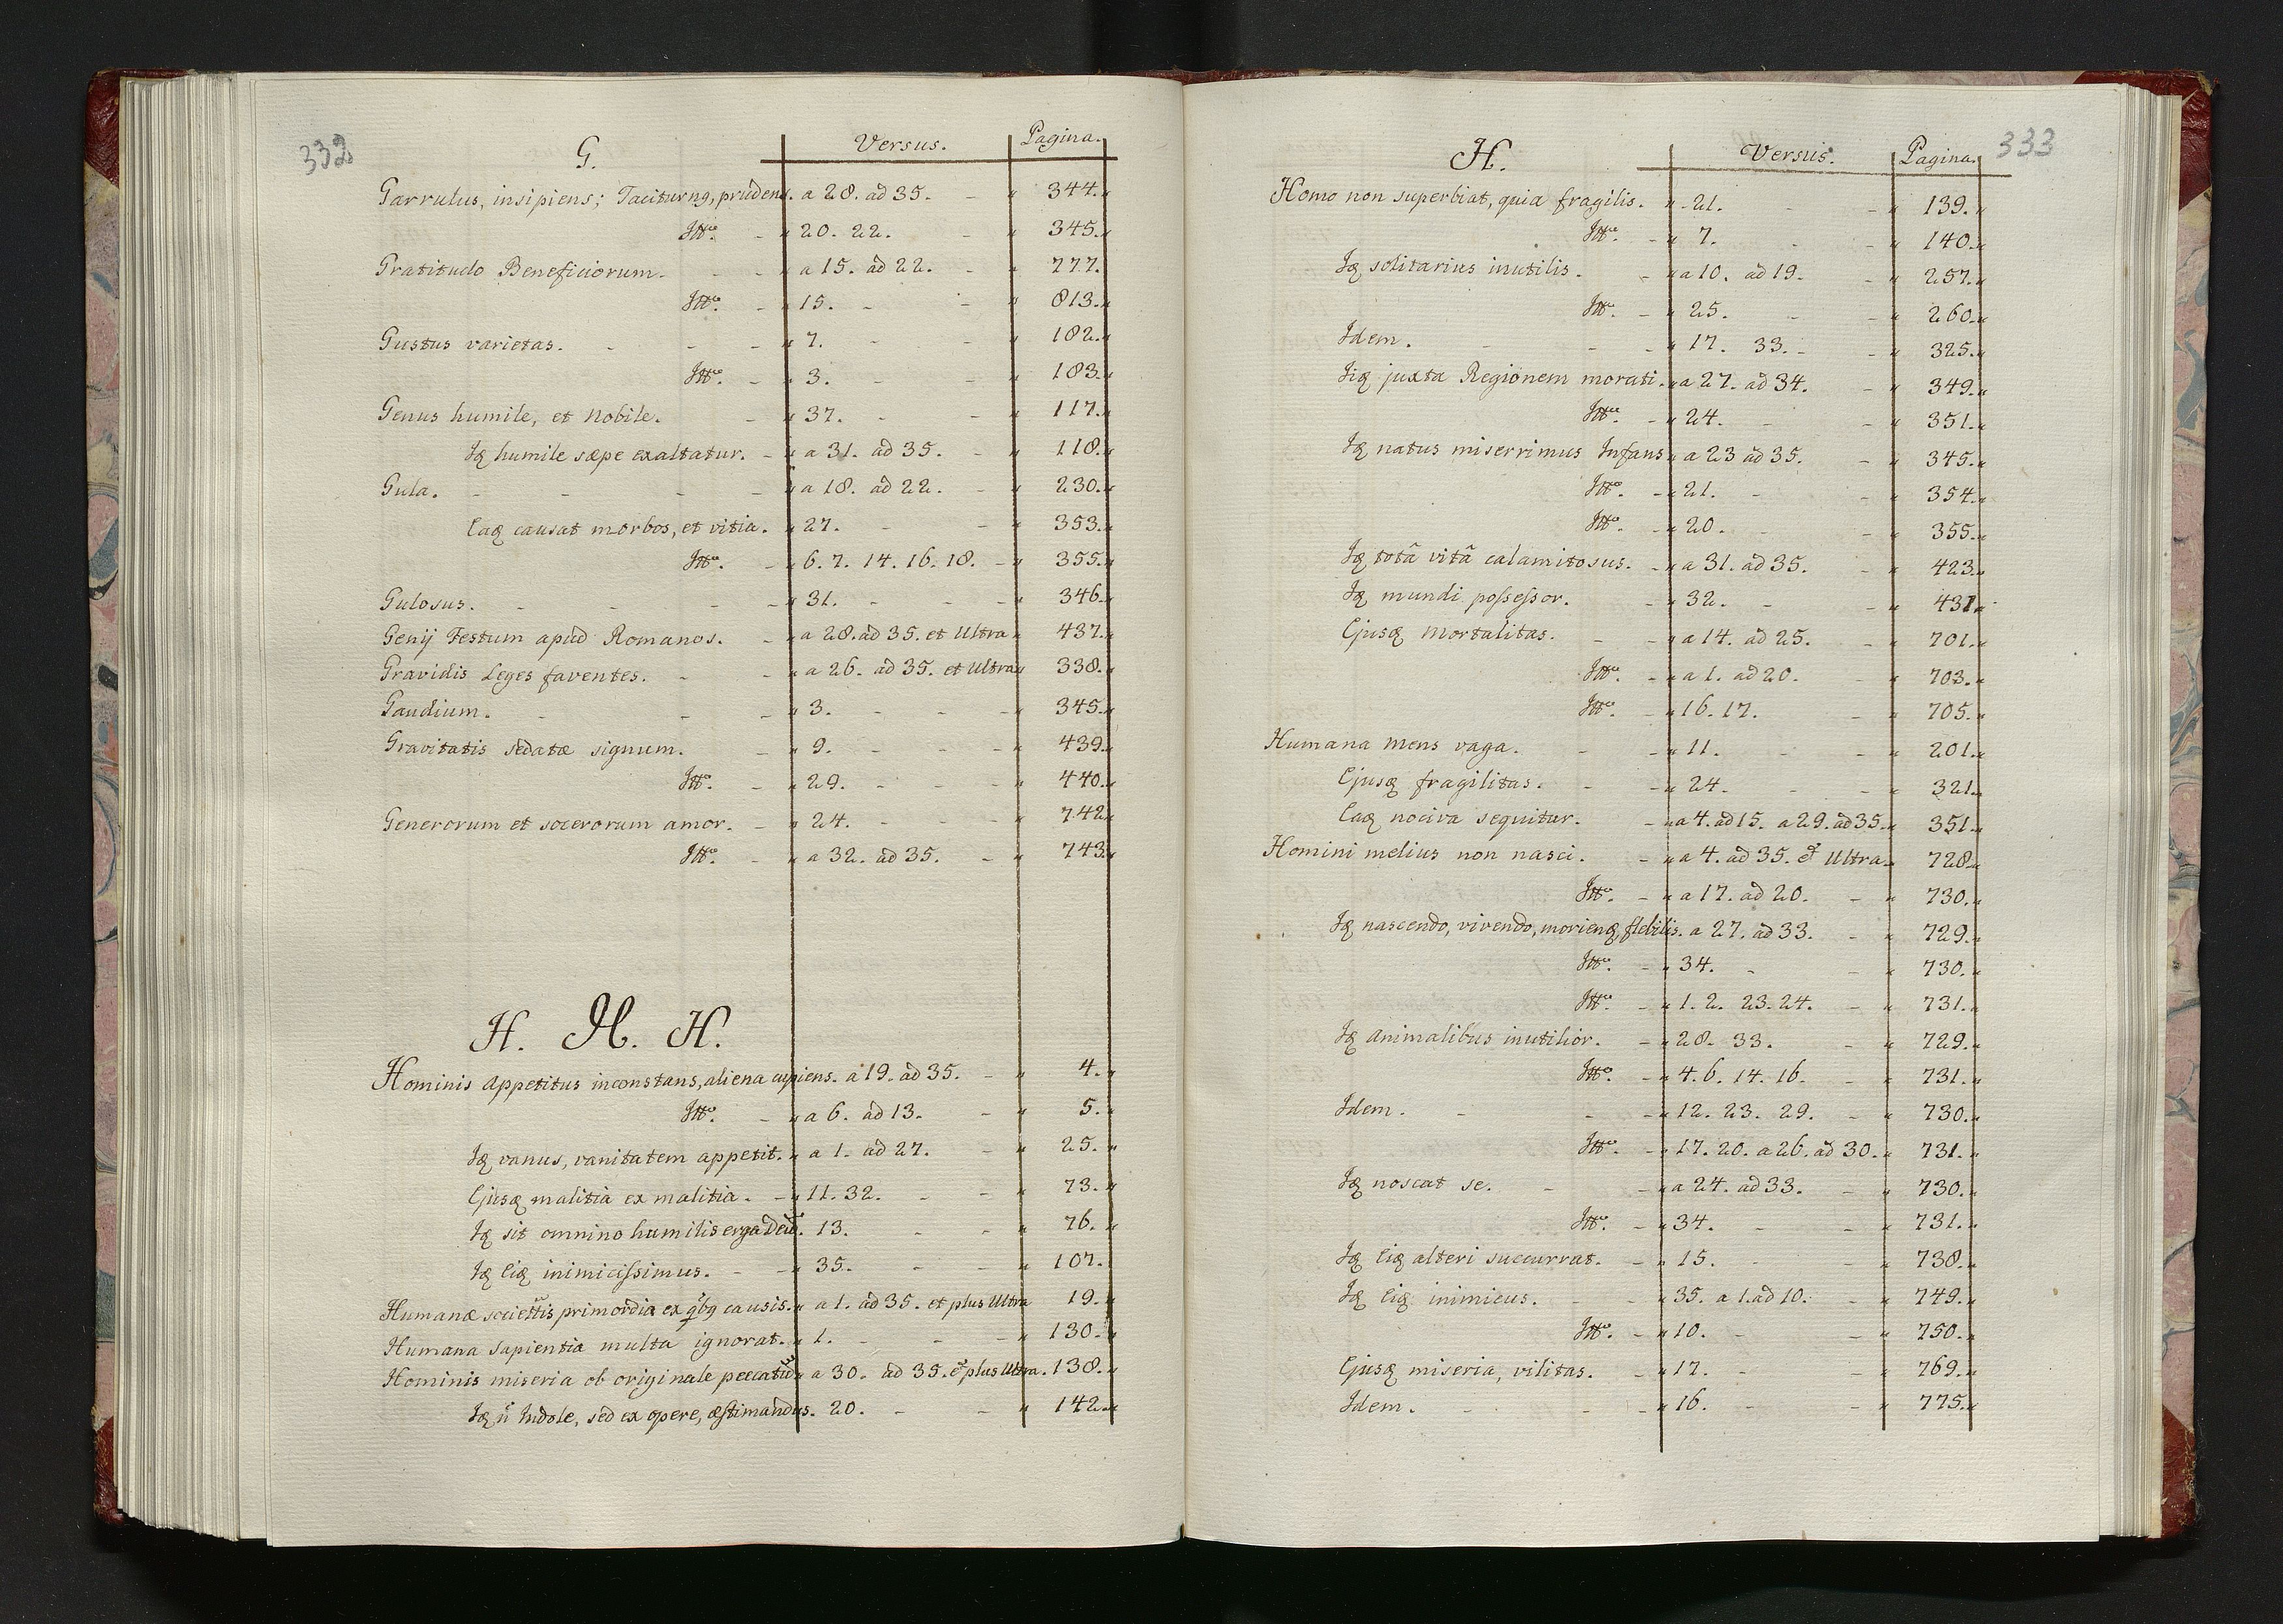 332
G. Versus. Pagina.
Garrulus, insipiens; Taciturnꝰ, prudens. a 28. ad 35. - " 344. "
Itt.º - " 20. 22. - " 345. "
Gratitudo Beneficiorum. - - " a 15. ad 22. - " 777. "
Itt.º - " 15. - - " 813. "
Gustus varietas. - - - " 7. - - " 182. "
Itt.º - " 3. - - " 183. "
Genus humile, et Nobile. - " 37. - - " 117. "
Iq humile sæpe exaltatur. - " a 31. ad 35. - " 118. "
Gula. - - - - " a 18. ad 22. - " 230. "
Eaq causat morbos, et vitia. " 27. - - " 353. "
Itt.º - " 6. 7. 14. 16. 18. - " 355. "
Gulosus. - - - - " 31. - - - " 346. "
Genij Festum apud Romanos. - " a 28. ad 35. et Ultra " 437. "
Gravidis Leges faventes. - - " a 26. ad 35. et Ultra " 338. "
Gaudium. - - - " 3. - - - " 345. "
Gravitatis sedatæ signum. - " 9. - - - " 439. "
Itt.º - " 29. - - - " 440. "
Generorum et socerorum amor. - " 24. - - - " 742. "
Itt.º - " a 32. ad 35. - " 743. "
H. H. H.
Hominis appetitus inconstans, aliena cupiens. a 19. ad 35. - " 4. "
Itt.º - " a 6. ad 13. - " 5. "
Iq vanus, vanitatem appetit. " a 1. ad 27. - " 25. "
Ejusq malitia ex malitia. - " 11. 32. - - " 73. "
Iq sit omnino humilis erga Deũ. 13. - - " 76. "
Iq Eiq inimicissimus. - - " 35. - - " 107. "
Humanæ societtis primordia ex qbꝰ causis. " a 1. ad 35. et plus Ultra 19. "
Humana sapientia multa ignorat. " 1. - - - " 130. "
Hominis miseria ob originale peccatũ " a 30. ad 35. et plus Ultra. 138. "
Iq ñ Indole, sed ex opere, æstimandus. 20. - - " 142. "
333
H. Versus. Pagina.
Homo non superbiat, quia fragilis. " 21. - - " 139. "
Itt.º - " 7. - - " 140. "
Iq solitarius inutilis. - " a 10. ad 19. - " 257. "
Itt.º - " 25. - - " 260. "
Idem. - - - " 17. 33. - - " 325. "
Iiq juxta Regionem morati. " a 27. ad 34. - " 349. "
Itt.º - " 24. - - " 351. "
Iq natus miserrimus Infans " a 23 ad 35. - " 345. "
Itt.º - " 21. - - " 354. "
Itt.º - " 20. - - " 355. "
Iq totâ vitâ calamitosus. - " a 31. ad 35. - " 423. "
Iq mundi possessor. - " 32. - - " 431. "
Ejusq mortalitas. - - " a 14. ad 25. - " 701. "
Itt.º - " a 1. ad 20. - " 703. "
Itt.º - " 16. 17. - " 705. "
Humana mens vaga. - - " 11. - - " 201. "
Ejusq fragilitas. - - " 24. - - " 321. "
Eaq nociva sequitur. - " a 4. ad 15. a 29. ad 35. " 351. "
Homini melius non nasci. - " a 4. ad 35. et Ultra. " 728. "
Itt.º - " a 17. ad 20. - " 730. "
Iq nascendo, vivendo, morienq, flebilis. a 27. ad 33. - " 729. "
Itt.º - " 34. - - " 730. "
Itt.º - " 1. 2. 23. 24. - " 731. "
Iq animalibus inutilior. - " 28. 33. - " 729. "
Itt.º - " 4. 6. 14. 16. - " 731. "
Idem. - - - " 12. 23. 29. - " 730. "
Itt.º - " 17. 20. a 26. ad 30. " 731. "
Iq noscat se. - - " a 24. ad 33. - " 730. "
Itt.º - " 34. - - " 731. "
Iq Eiq alteri succurrat. - " 15. - - " 738. "
Iq Eiq inimicus. - - " 35. a 1. ad 10. - " 749. "
Itt.º - " 10. - - " 750. "
Ejusq miseria, vilitas. - " 17. - - " 769. "
Idem. - - - " 16. - - " 775. "